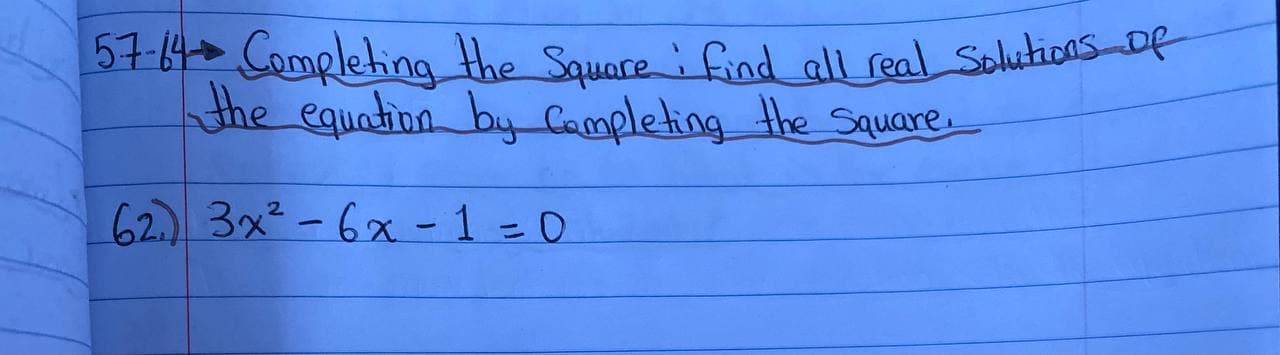 57-64→ Completing the Square : find all real Solutions of
the equation by Completing the Square.
62.) 3x² - 6x - 1 = 0